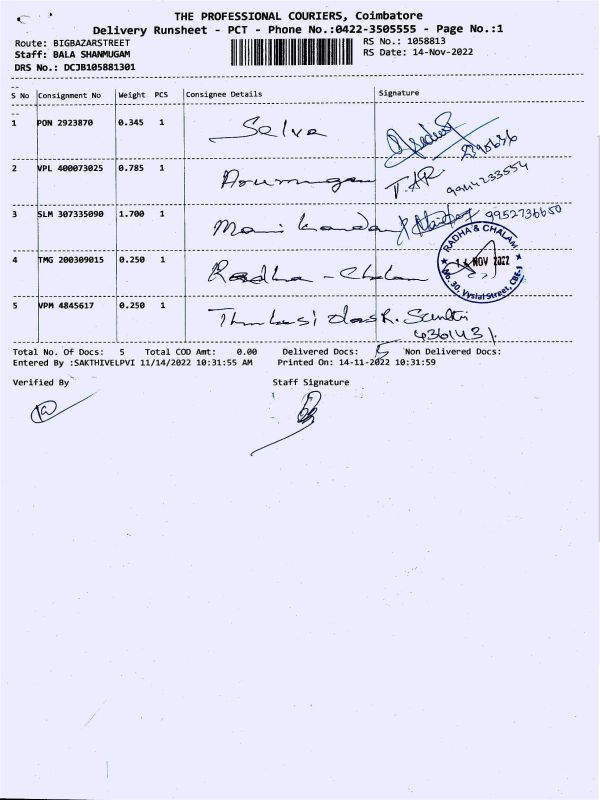 THE PROFESSIONAL COURIERS, Coimbatore
Delivery Runsheet - PCT - Phone No.:0422-3505555 - Page No.:1
Route: BIGBAZARSTREET RS No.: 1058813
Staff: BALA SHANMUGAM RS Date: 14-Nov-2022
DRS No.: DCJB105881301
S No Consignment No Weight PCS Consignee Details Signature
1 PON 2923870 0.345 1 Selva
2 VPL 400073025 0.785 1 Arumugam T.AR 9944233554
3 SLM 307335090 1.700 1 Mani kandan 9952736650
4 TMG 200309015 0.250 1 Radha - Chalam
RADHA & CHALAM
14 NOV 2022
No. 30, Vysial Street, CBE-1
5 VPM 4845617 0.250 1 Thulasi das R.
4361431
Total No. Of Docs: 5 Total COD Amt: 0.00 Delivered Docs: 5 Non Delivered Docs:
Entered By :SAKTHIVELPVI 11/14/2022 10:31:55 AM Printed On: 14-11-2022 10:31:59
Verified By Staff Signature